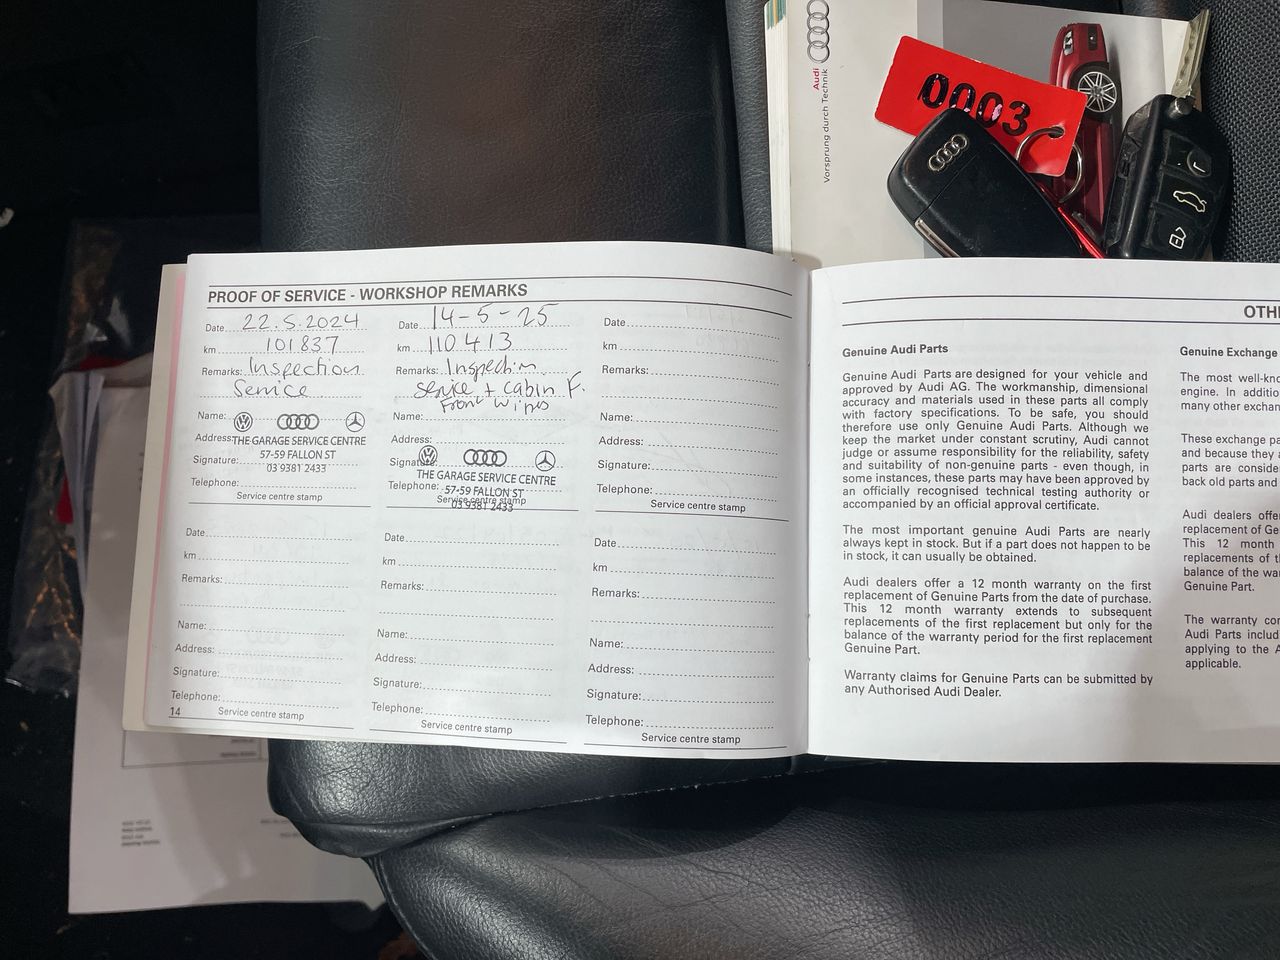 Audi
Vorsprung durch Technik
0003
PROOF OF SERVICE - WORKSHOP REMARKS
Date 22.5.2024
km 101837
Remarks: Inspection
Service
Name:
Address:
THE GARAGE SERVICE CENTRE
57-59 FALLON ST
Signature:
03 9381 2433
Telephone:
Service centre stamp
Date 14-5-25
km 110413
Remarks: Inspection
service + cabin F.
Front Wipers
Name:
Address:
Signature:
THE GARAGE SERVICE CENTRE
Telephone:
57-59 FALLON ST
Service centre stamp
03 9381 2433
Date
km
Remarks:
Name:
Address:
Signature:
Telephone:
Service centre stamp
Date
km
Remarks:
Name:
Address:
Signature:
Telephone:
Service centre stamp
Date
km
Remarks:
Name:
Address:
Signature:
Telephone:
Service centre stamp
Date
km
Remarks:
Name:
Address:
Signature:
Telephone:
Service centre stamp
14
OTHE
Genuine Audi Parts
Genuine Audi Parts are designed for your vehicle and
approved by Audi AG. The workmanship, dimensional
accuracy and materials used in these parts all comply
with factory specifications. To be safe, you should
therefore use only Genuine Audi Parts. Although we
keep the market under constant scrutiny, Audi cannot
judge or assume responsibility for the reliability, safety
and suitability of non-genuine parts - even though, in
some instances, these parts may have been approved by
an officially recognised technical testing authority or
accompanied by an official approval certificate.
The most important genuine Audi Parts are nearly
always kept in stock. But if a part does not happen to be
in stock, it can usually be obtained.
Audi dealers offer a 12 month warranty on the first
replacement of Genuine Parts from the date of purchase.
This 12 month warranty extends to subsequent
replacements of the first replacement but only for the
balance of the warranty period for the first replacement
Genuine Part.
Warranty claims for Genuine Parts can be submitted by
any Authorised Audi Dealer.
Genuine Exchange
The most well-kno
engine. In additio
many other exchan
These exchange pa
and because they a
parts are conside
back old parts and
Audi dealers offer
replacement of Ge
This 12 month
replacements of th
balance of the war
Genuine Part.
The warranty con
Audi Parts includ
applying to the A
applicable.